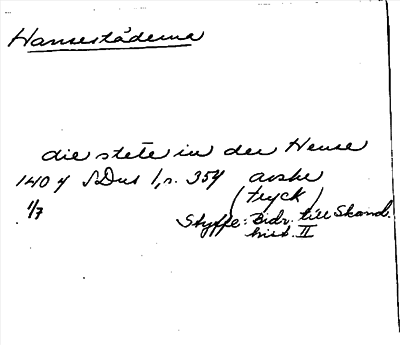 Hansestäderna
die stete in der Hense
1404 SDns 1, n. 354 avskr
1/7 (tryck)
Styffe: Bidr. till Skand.
hist. II